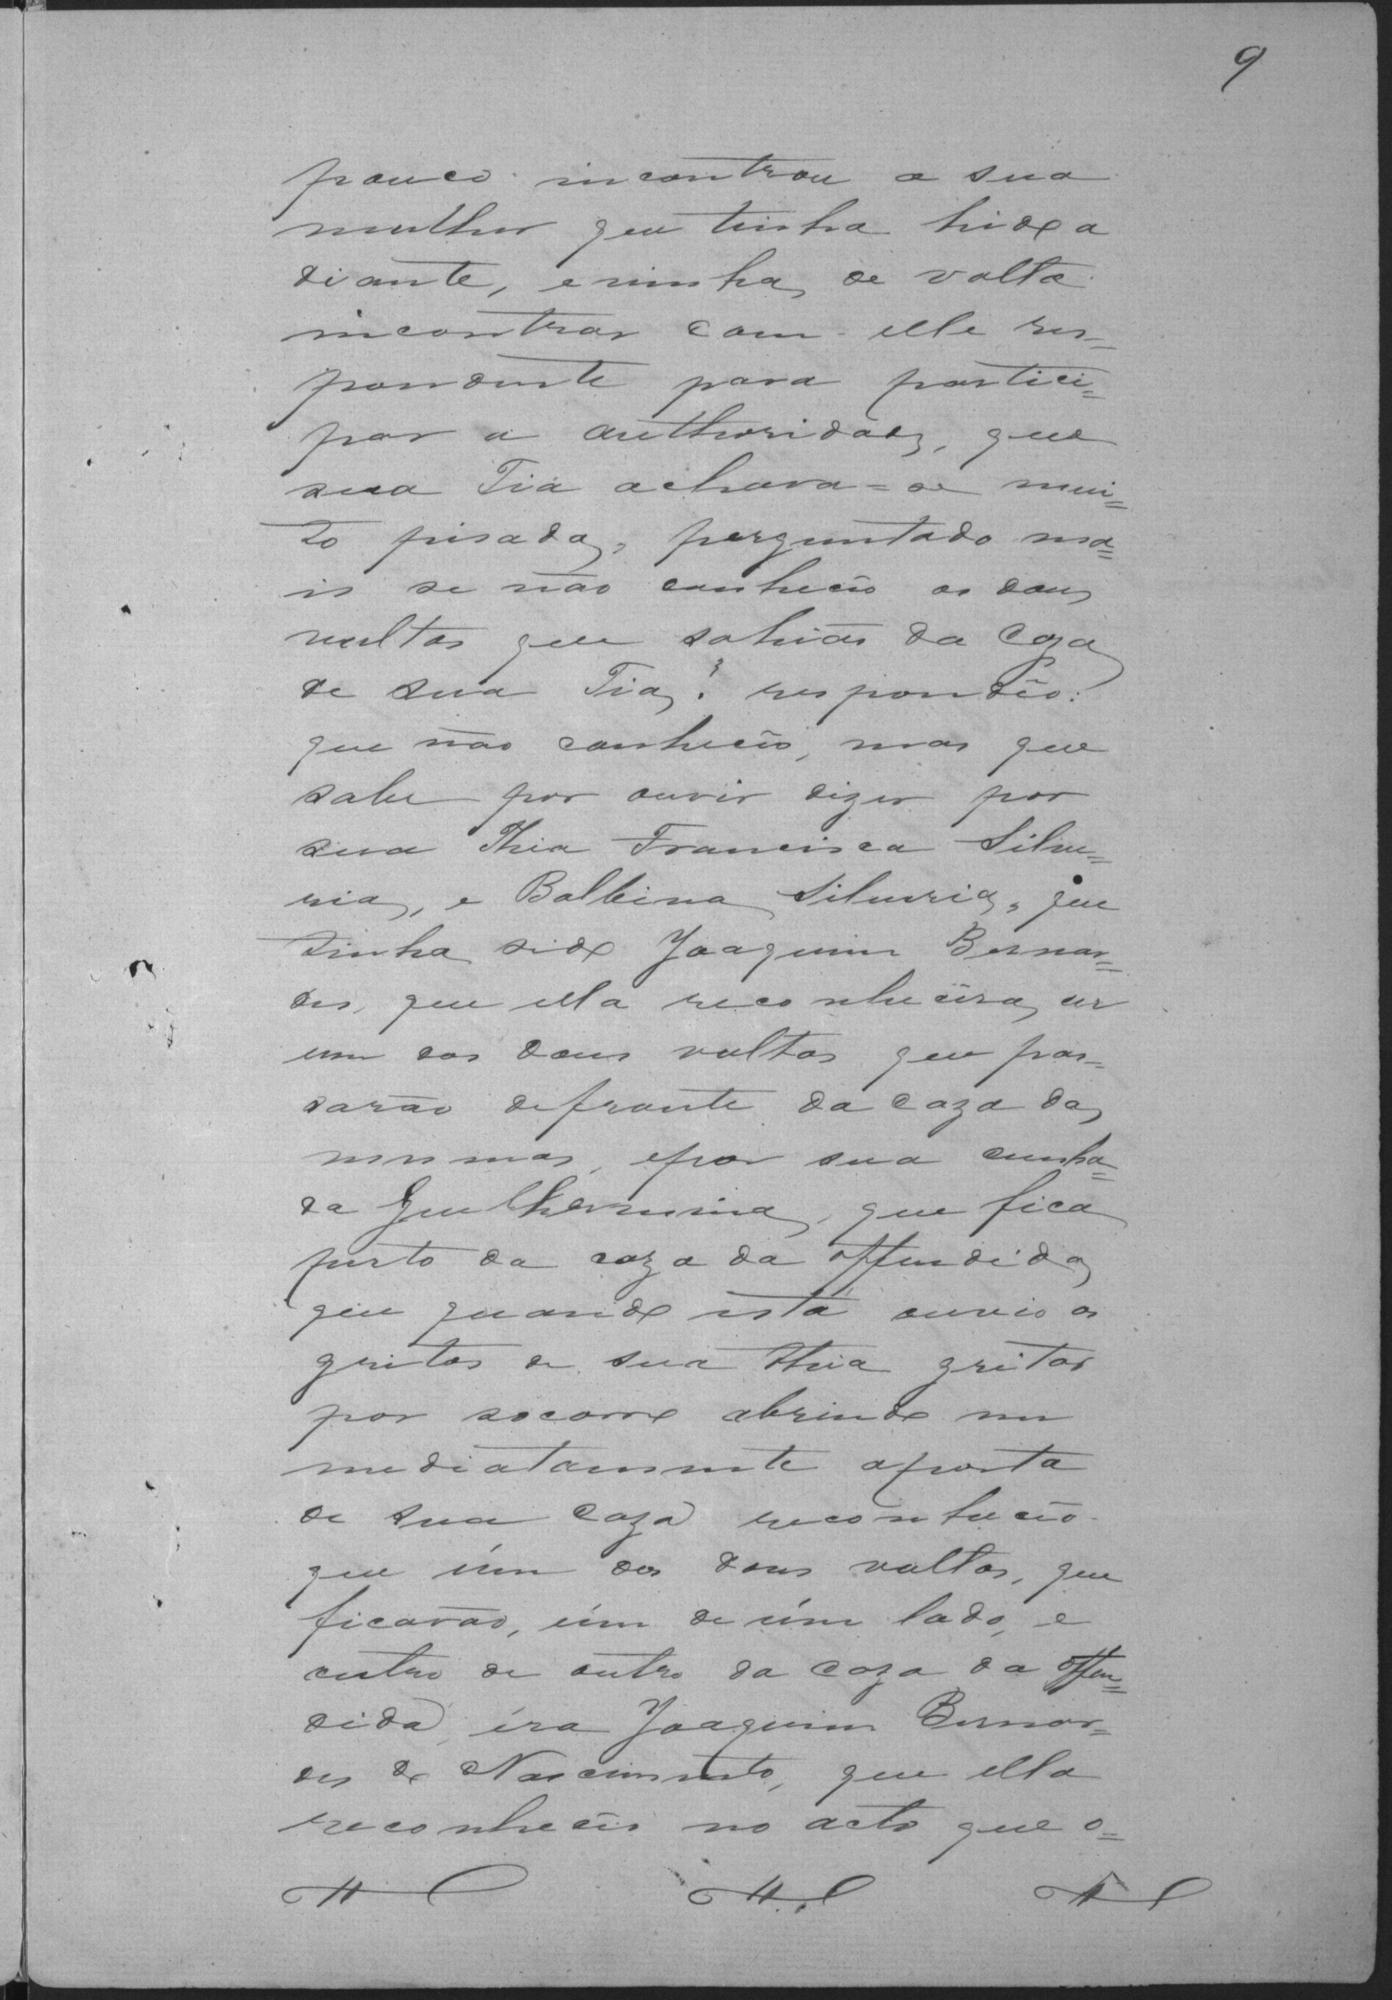 9
pouco incontrou a sua
mulher que tinha hido a
diante, e vinha de volta
incontrar com elle res=
pondente para partici=
par a authoridade, que
sua Tia achava=se mui=
to pisada, perguntado ma=
is se não conhecio os dous
vultos que sahião da Caza
de sua Tia? respondêo:
que não conhecêo, mas que
sabe por ouvir dizer por
sua Thia Francisca Silve=
ria, e Balbina Silveria, que
tinha sido Joaquim Bernar=
des, que ella reconhecêra, ser
um dos dous vultos que pas=
sarão defronte da caza das
mesmas, e por sua cunha=
da Guilhermina, que fica
perto da caza da offendida,
que quando esta ouvio os
gritos de sua Thia gritar
por socorro abrindo im
mediatamente a porta
de sua Caza reconhecêo
que úm dos dous vultos, que
ficarão, úm de úm lado, e
outro de outro da caza da offen=
dida, éra Joaquim Bernar=
des do Nascimento, que ella
reconhecêo no acto que o=